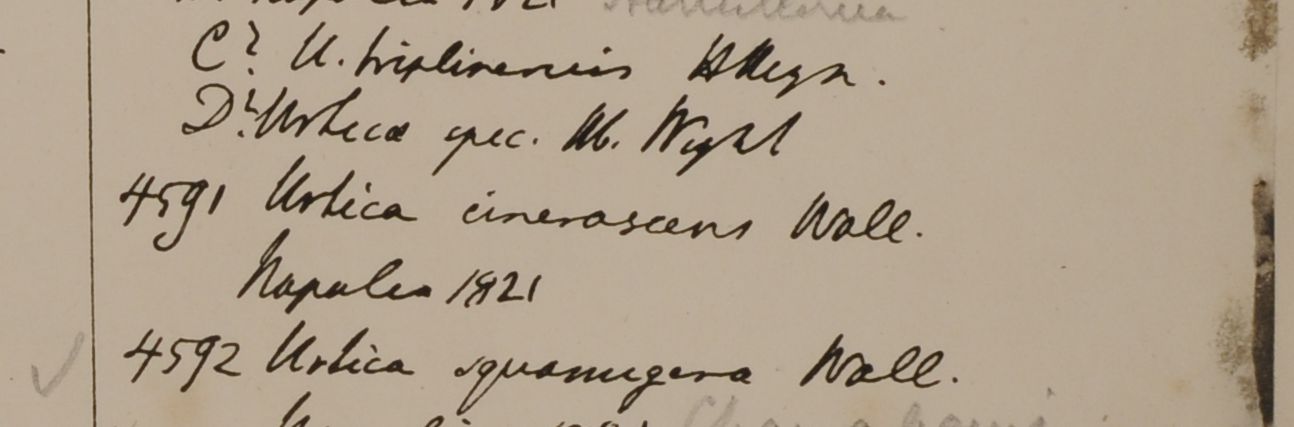 C? U. triplinervis HHeyn.
D? Urtica spec. Hb. Wight
4591 Urtica cinerascens Wall.
Napalia 1821
4592 Urtica squamigera Wall.